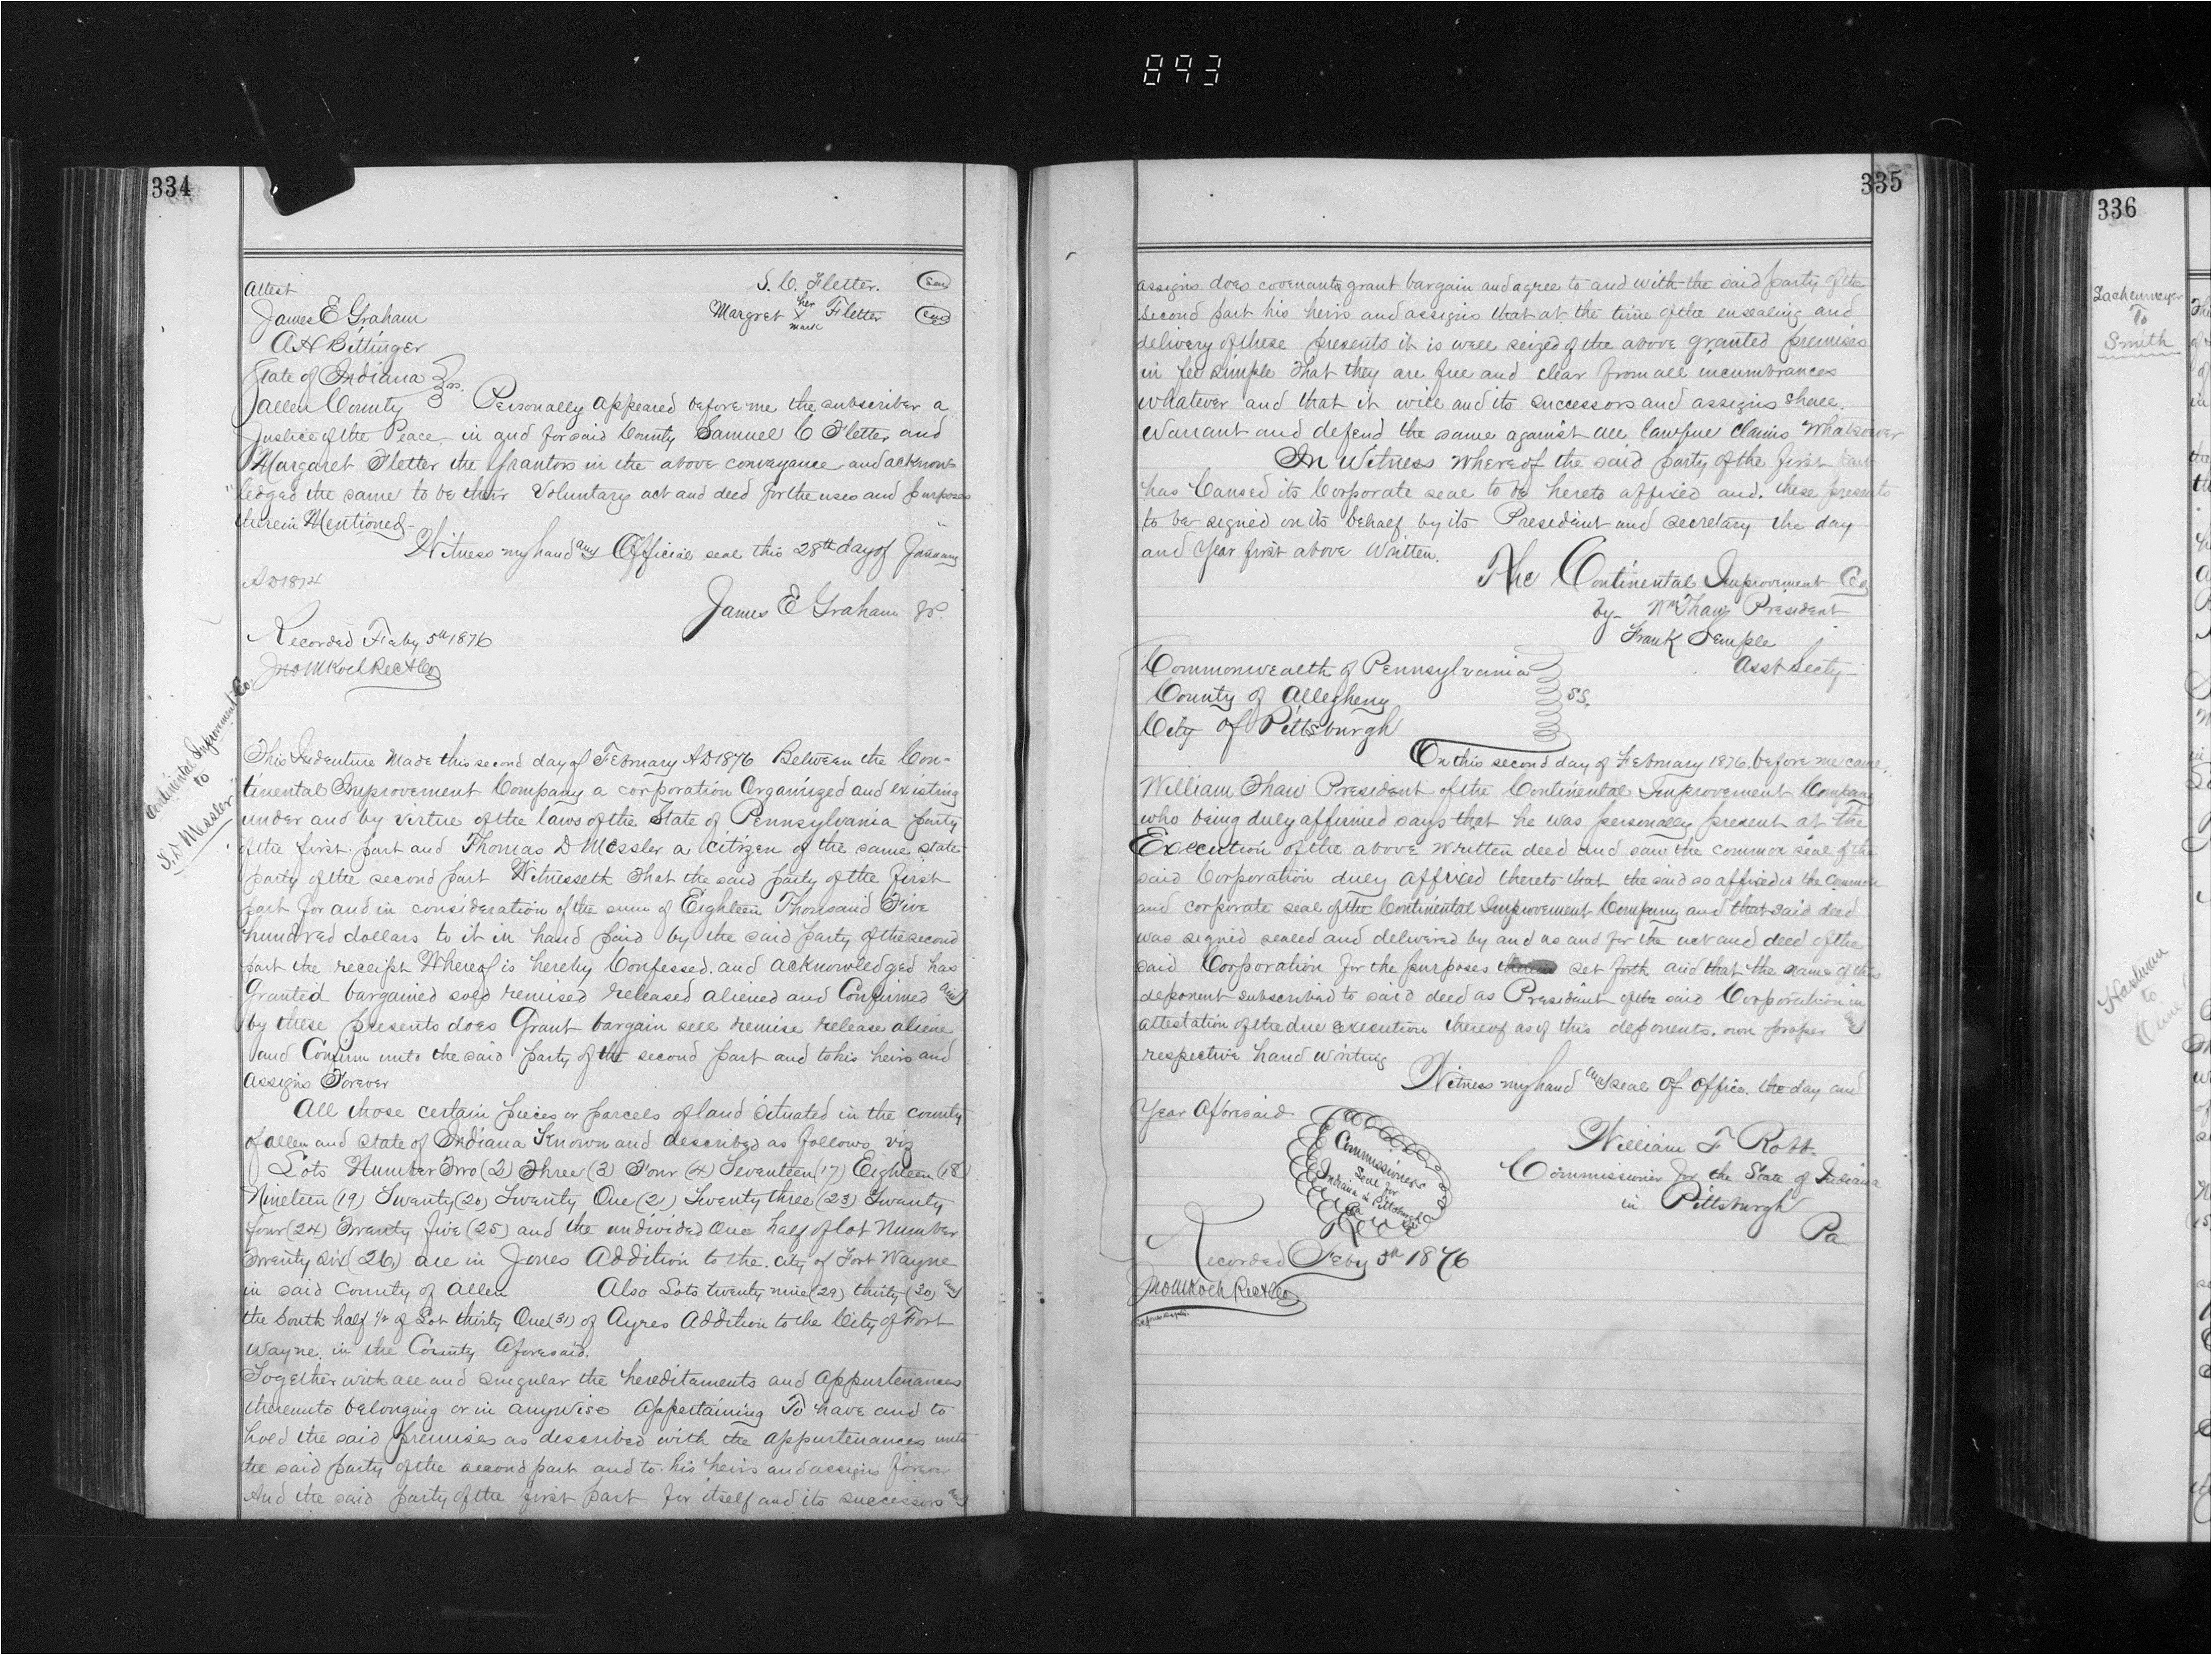 893
334
Attest
S. C. Fletter. Seal
James E Graham
Margret her X mark Fletter Seal
A H Bittinger
State of Indiana } ss.
Allen County } Personally appeared before me the subscriber a
Justice of the Peace in and for said County Samuel C Fletter and
Margaret Fletter the Grantors in the above conveyance and acknow-
ledged the same to be their Voluntary act and deed for the uses and purposes
therein Mentioned
Witness my hand and Official seal this 28th day of January
AD 1874
James E Graham JP.
Recorded Feby 5th 1876
Jno M Koch Rec A Co
Continental Improvement Co.
to
T. D. Messler
This Indenture Made this second day of February AD 1876 Between the Con-
tinental Improvement Company a corporation Organized and existing
under and by Virtue of the laws of the State of Pennsylvania party
of the first part and Thomas D Messler a citizen of the same state
party of the second part Witnesseth That the said party of the first
part for and in consideration of the sum of Eighteen Thousand Five
hundred dollars to it in hand paid by the said party of the second
part the receipt Whereof is hereby Confessed and acknowledged has
Granted bargained sold remised released aliened and Confirmed and
by these presents does Grant bargain sell remise release aliene
and Confirm unto the said party of the second part and to his heirs and
assigns Forever
All those certain pieces or parcels of land situated in the county
of allen and state of Indiana Known and described as follows viz
Lots Number Two (2) Three (3) Four (4) Seventeen (17) Eighteen (18)
Nineteen (19) Twenty (20) Twenty One (21) Twenty three (23) Twenty
four (24) Twenty five (25) and the undivided One half of lot Number
Twenty six (26) all in Jones Addition to the city of Fort Wayne
in said County of Allen Also Lots twenty nine (29) thirty (30) and
the South half 1/2 of Lot thirty One (31) of Ayres Addition to the City of Fort
Wayne in the County Aforesaid.
Together with all and singular the hereditaments and Appurtenances
thereunto belonging or in anywise Appertaining To have and to
hold the said premises as described with the Appurtenances unto
the said party of the second part and to his heirs and assigns forever
And the said party of the first part for itself and its successors and
335
assigns does covenant grant bargain and agree to and with the said party of the
second part his heirs and assigns that at the time of the ensealing and
delivery of these presents it is well seized of the above granted premises
in fee simple That they are free and clear from all incumbrances
whatever and that it will and its successors and assigns shall
Warrant and defend the same against all lawful Claims Whatsoever
In Witness Whereof the said party of the first part
has Caused its Corporate seal to be hereto affixed and these presents
to be signed on its behalf by its President and secretary the day
and Year first above Written.
The Continental Improvement Co
by Wm Thaw President
Frank Semple
Asst Secty
Commonwealth of Pennsylvania
County of Allegheny } SS.
City of Pittsburgh
On this second day of February 1876 before me came
William Thaw President of the Continental Improvement Company
who being duly affirmed says that he was personally present at the
Execution of the above written deed and saw the common seal of the
said Corporation duly affixed thereto that the said so affixed is the Common
and corporate seal of the Continental Improvement Company and that said deed
was signed sealed and delivered by and as and for the act and deed of the
said Corporation for the purposes set forth and that the name of this
deponent subscribed to said deed as President of the said Corporation in
attestation of the due execution thereof as of this deponents own proper and
respective hand writing
Witness my hand and seal of office the day and
Year Aforesaid
Commissioners
Seal for
Indiana in Pittsburgh
Pa
William F Robb
Commissioner for the State of Indiana
in Pittsburgh
Pa
Recorded Feby 5th 1876
Jno M Koch Rec A Co
336
Lachenmeyer
To
Smith
to
Cline